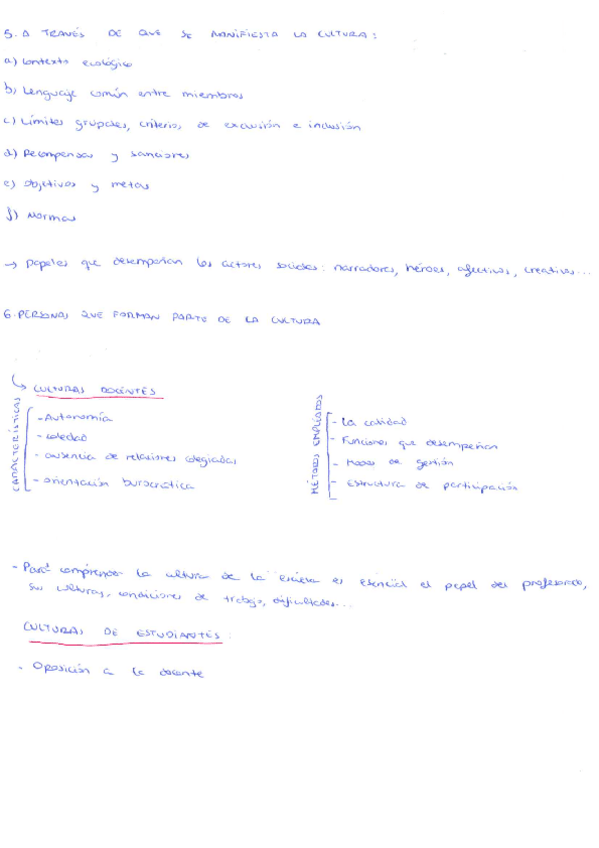 5. A TRAVÉS DE QUE SE MANIFIESTA LA CULTURA:
a) Contexto ecológico
b) Lenguaje común entre miembros
c) Límites grupales, criterios de exclusión e inclusión
d) Recompensas y sanciones
e) Objetivos y metas
f) Normas
→ Papeles que desempeñan los actores sociales: narradores, héroes, afectivos, creativos...
6. PERSONAS QUE FORMAN PARTE DE LA CULTURA
CULTURAS DOCENTES
CARACTERÍSTICAS
- Autonomía
- soledad
- ausencia de relaciones colegiadas
- orientación burocrática
MÉTODOS EMPLEADOS
- La calidad
- Funciones que desempeñan
- Modos de gestión
- Estructura de participación
- Para comprender la cultura de la escuela es esencial el papel del profesorado,
sus culturas, condiciones de trabajo, dificultades...
CULTURAS DE ESTUDIANTES:
- Oposición a la docente